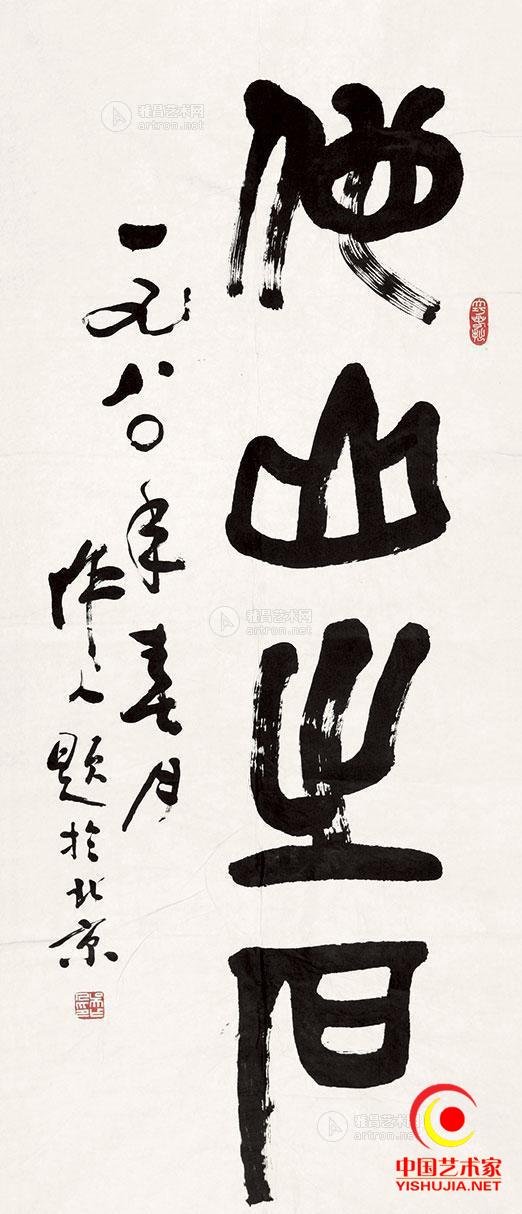 他山之石
一九八〇年春月
作人题於北京
雅昌艺术网
artron.net
雅昌艺术网
artron.net
雅昌艺术网
artron.net
中国艺术家
YISHUJIA.NET